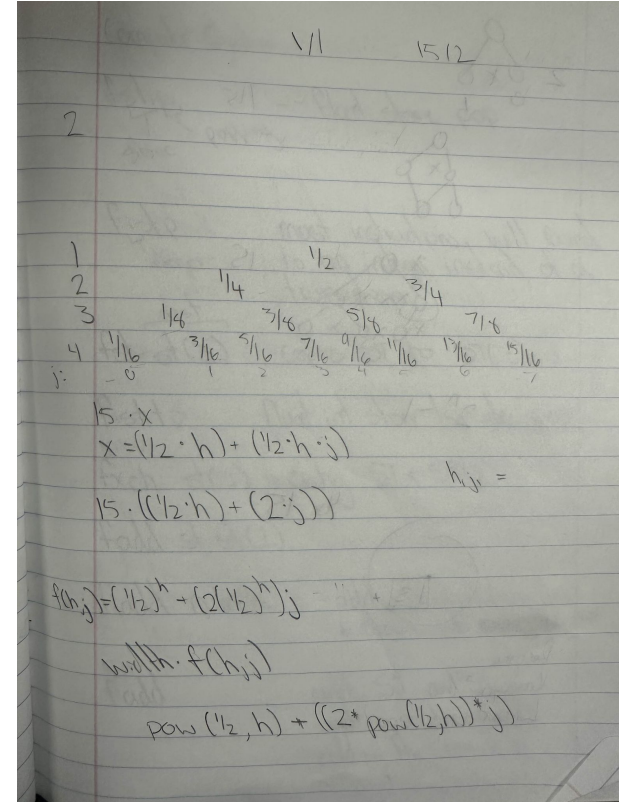 1/1 1512
2
1 1/2
2 1/4 3/4
3 1/8 3/8 5/8 7/8
4 1/16 3/16 5/16 7/16 9/16 11/16 13/16 15/16
j: 0 1 2 3 4 6
15 · x
x = (1/2 · h) + (1/2 · h · j)
h, j, =
15 · ((1/2 · h) + (2 · j))
f(h,j) = (1/2)^h + (2(1/2)^h)j
width · f(h,j)
pow (1/2, h) + ((2* pow(1/2,h))*j)